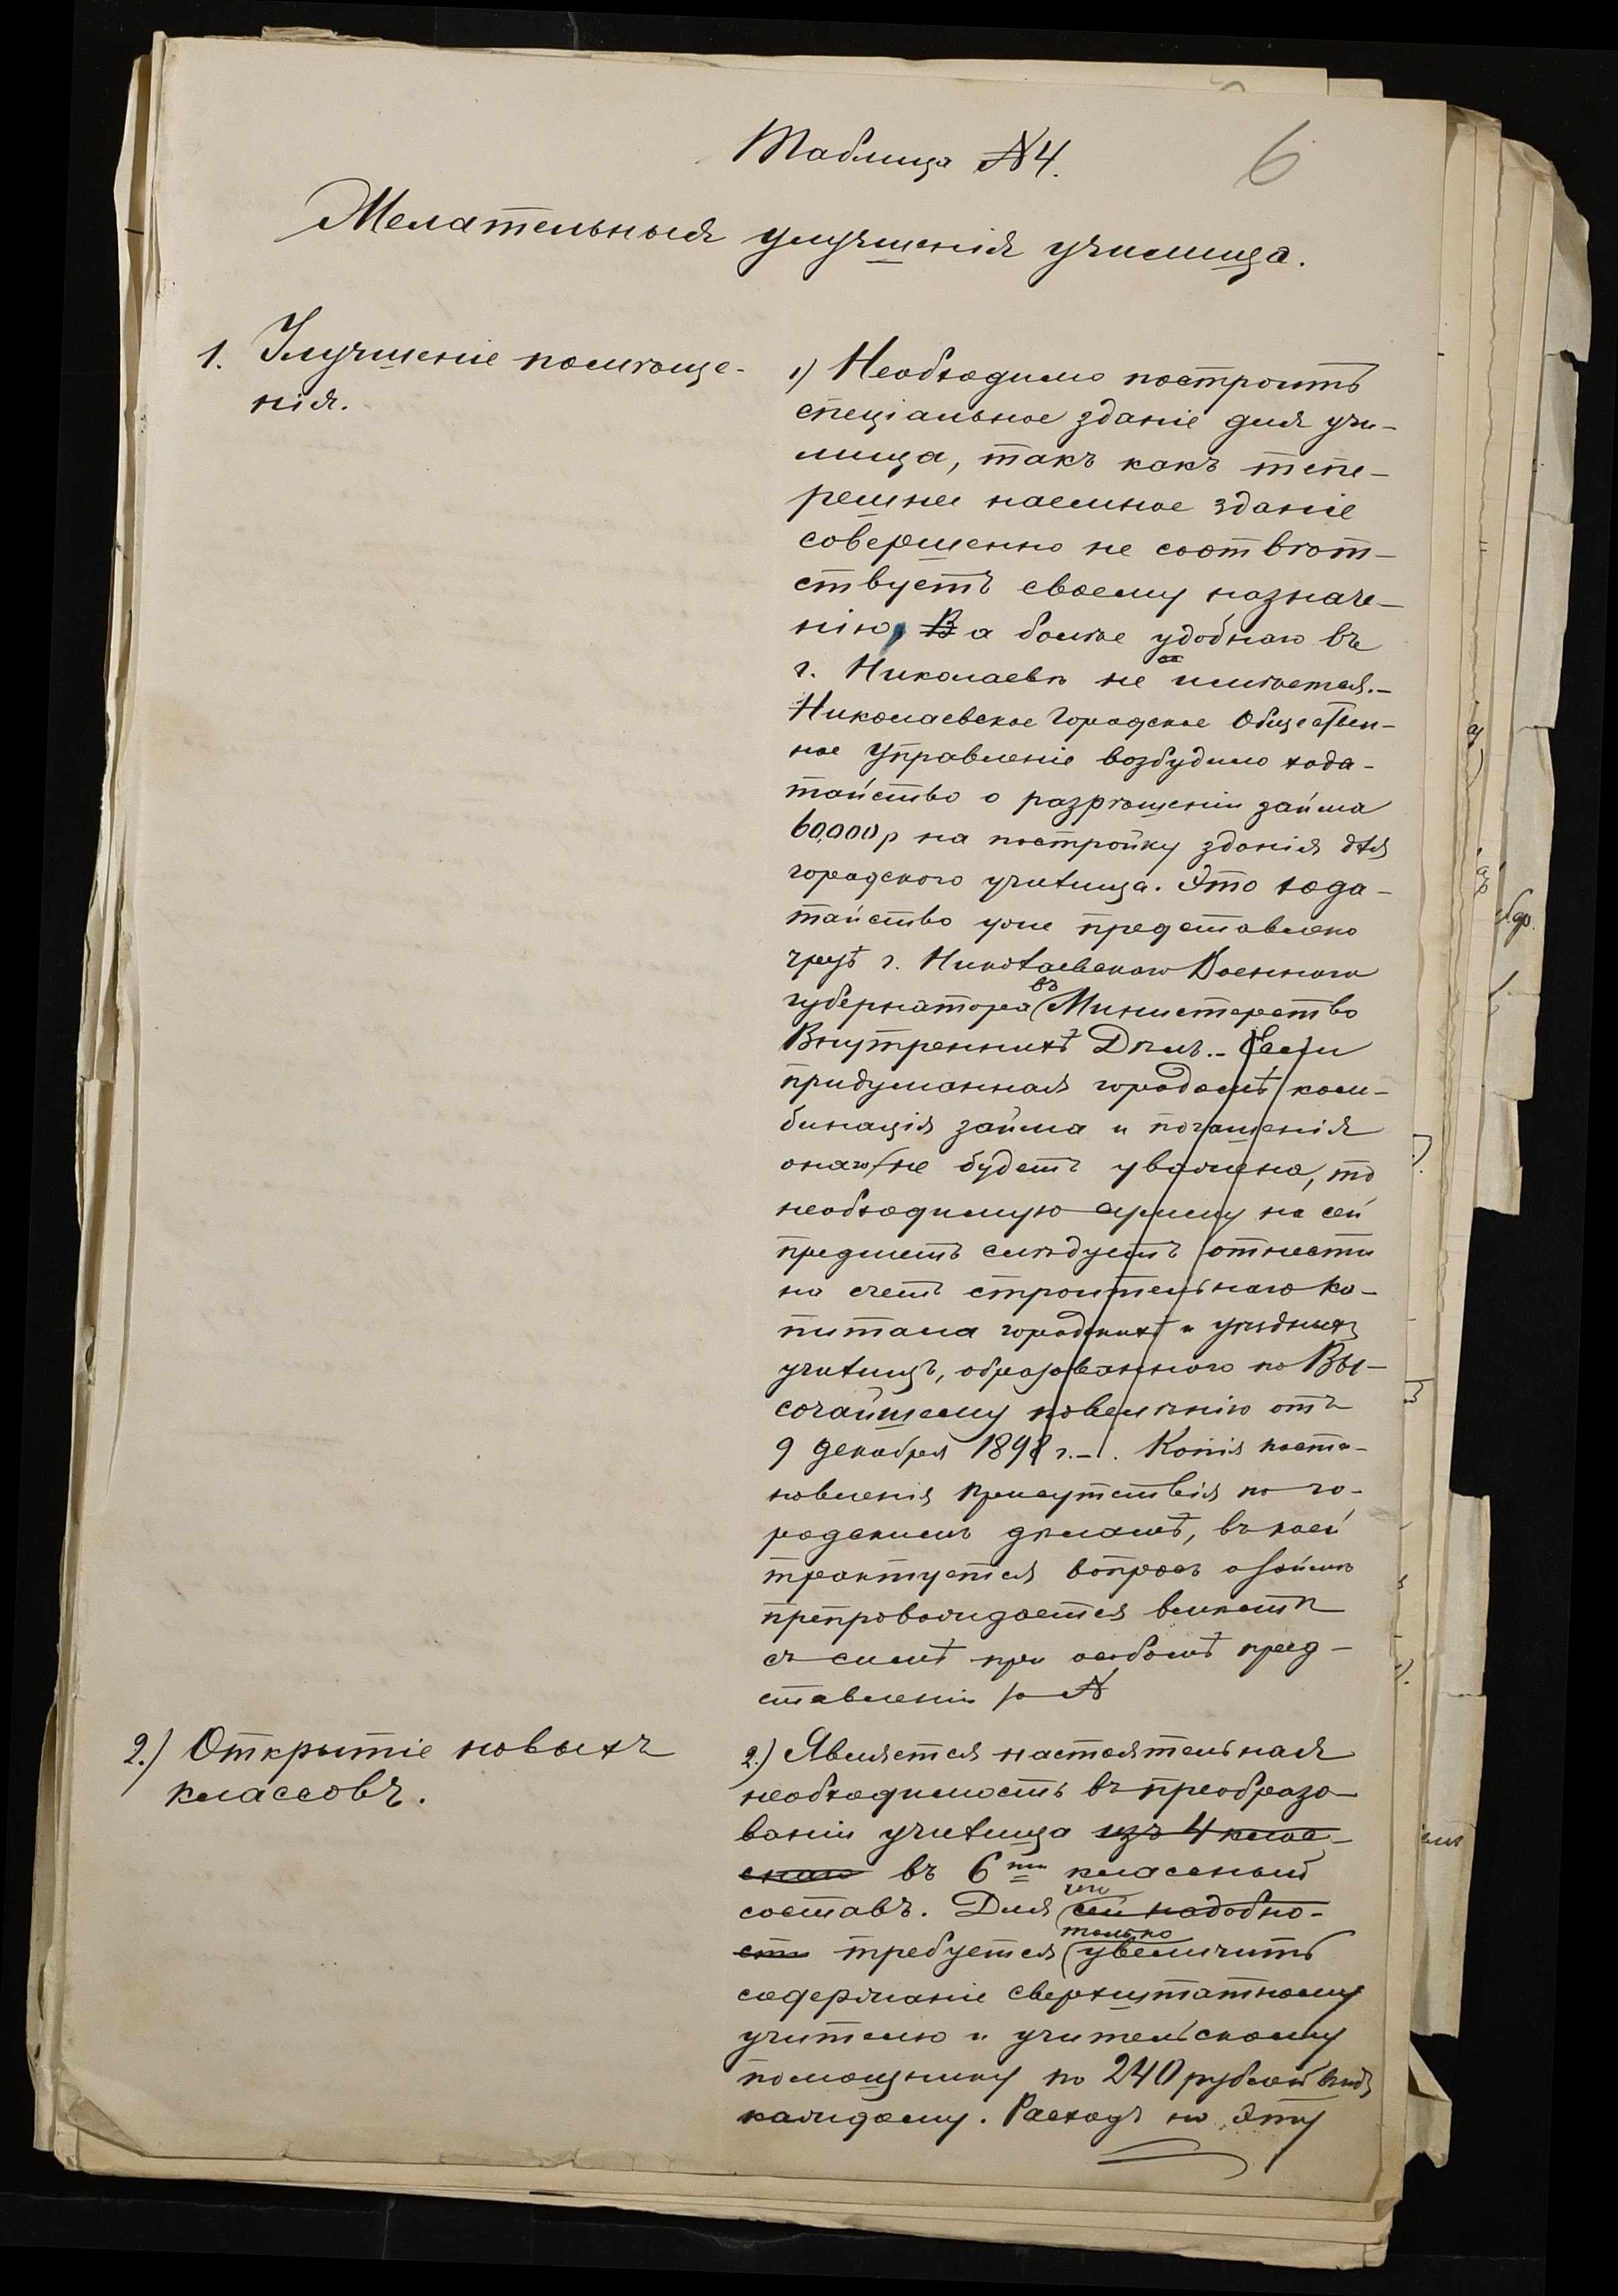 Таблица №4.
6
Желательныя улучшенія училища.
1. Улучшеніе помѣще-
нія.
1) Необходимо построить
спеціальное зданіе для учи-
лища, такъ какъ тепе-
решнее наемное зданіе
совершенно не соотвѣт-
ствуетъ своему назначе-
нію, В а болѣе удобнаго въ
г. Николаевѣ не имѣется.-
Николаевское Городское Обществен-
ное Управленіе возбудило хода-
тайство о разрѣшеніи займа
60,000 р на постройку зданія для
городского училища. Это хода-
тайство уже представлено
чрезъ г. Николаевскаго Военнаго
губернатора въ Министерство
Внутреннихъ Дѣлъ.- Если
придуманная городомъ ком-
бинація займа и погашенія
онаго не будетъ уважена, то
необходимую сумму на сей
предметъ слѣдуетъ отнести
на счетъ строительнаго ка-
питала городскихъ и уѣздныхъ
училищъ, образованнаго по Вы-
сочайшему повелѣнію отъ
9 декабря 1898 г.-. Копія поста-
новленія Присутствія по го-
родскимъ дѣламъ, въ коей
трактуется вопросъ о займѣ
препровождается вмѣстѣ
съ симъ при особомъ пред-
ставленіи за №
2.) Открытіе новыхъ
классовъ.
2.) Является настоятельная
необходимость въ преобразо-
ваніи училища изъ 4 клас-
снаго въ 6ти классный
составъ. Для чего сей надобно-
сти требуется только увеличить
содержаніе сверхштатному
учителю и учительскому
помощнику по 240 рублей въ годъ
каждому. Расходъ на эту